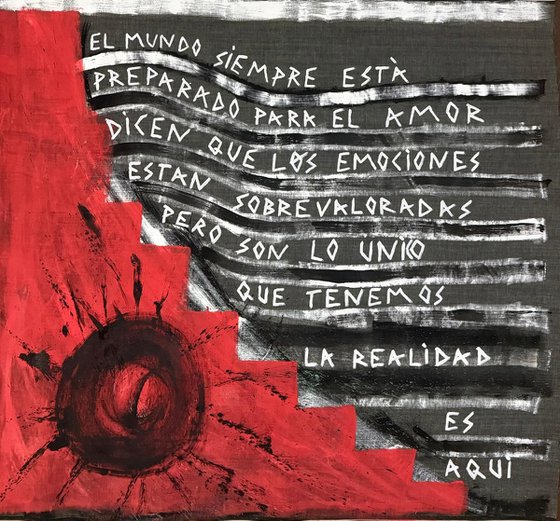 EL MUNDO SIEMPRE ESTÀ
PREPARADO PARA EL AMOR
DICEN QUE LOS EMOCIONES
ESTAN SOBREVALORADAS
PERO SON LO UNICO
QUE TENEMOS
LA REALIDAD
ES
AQUI